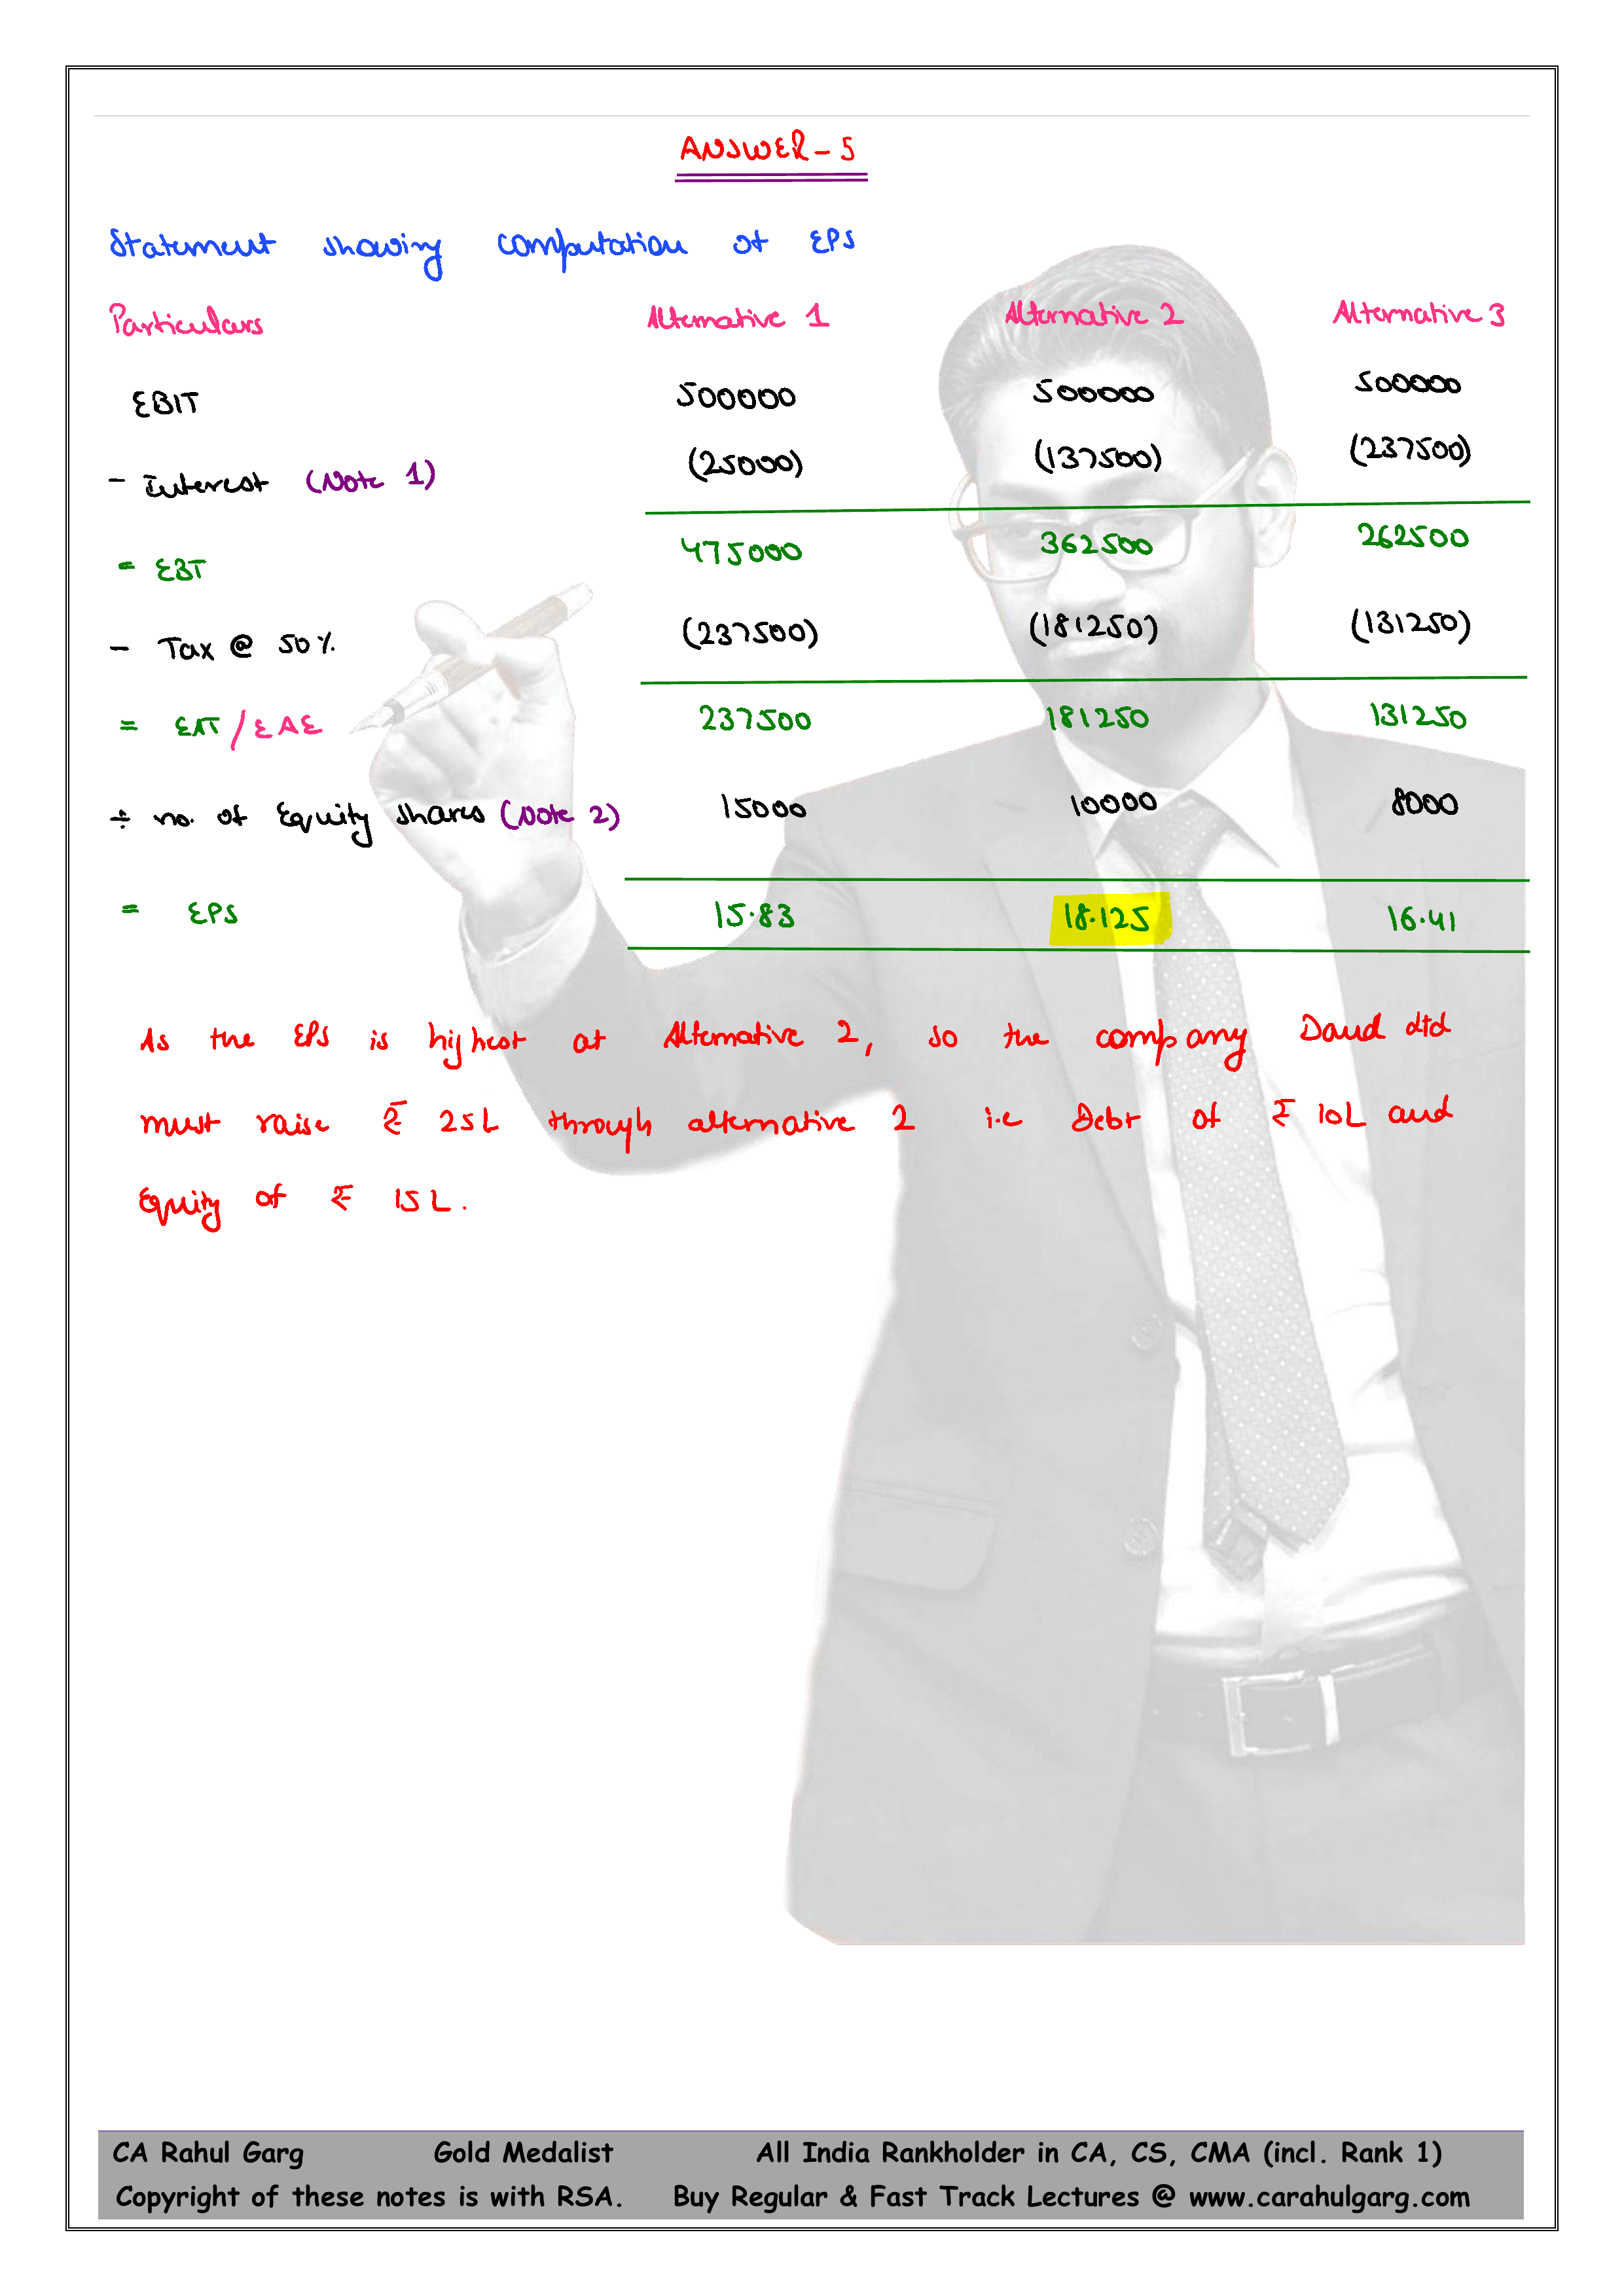 ANSWER-5
Statement showing computation of EPS
Particulars Alternative 1 Alternative 2 Alternative 3
EBIT 500000 500000 500000
- Interest (Note 1) (25000) (137500) (237500)
= EBT 475000 362500 262500
- Tax @ 50% (237500) (181250) (131250)
= EAT/EAE 237500 181250 131250
÷ no. of Equity shares (Note 2) 15000 10000 8000
= EPS 15.83 18.125 16.41
As the EPS is highest at Alternative 2, so the company Daud ltd
must raise ₹ 25L through alternative 2 i.e Debt of ₹ 10L and
Equity of ₹ 15L.
CA Rahul Garg Gold Medalist All India Rankholder in CA, CS, CMA (incl. Rank 1)
Copyright of these notes is with RSA. Buy Regular & Fast Track Lectures @ www.carahulgarg.com